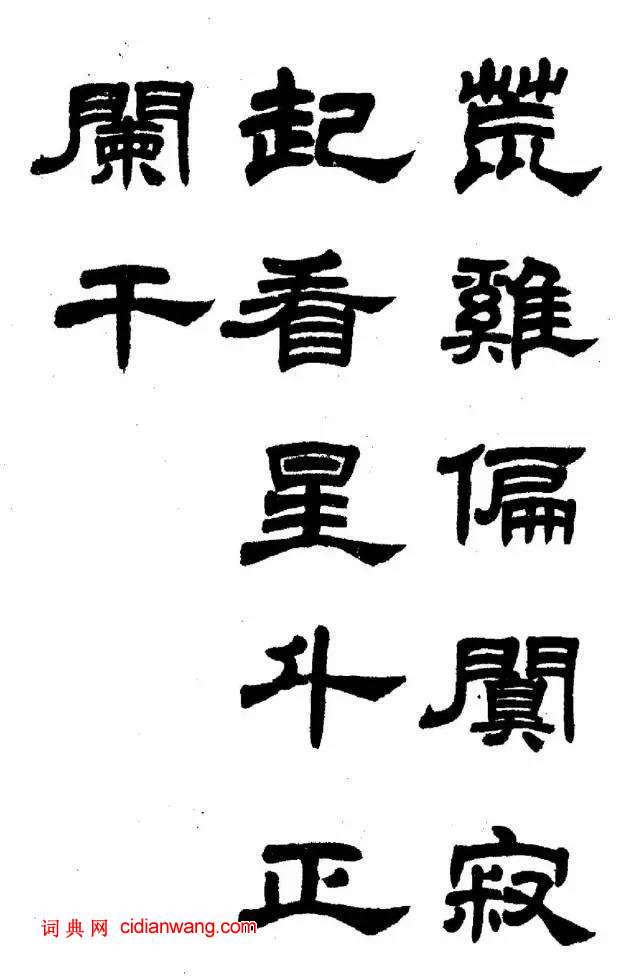 荒雞偏闃寂
起看星斗正
闌干
词典网 cidianwang.com